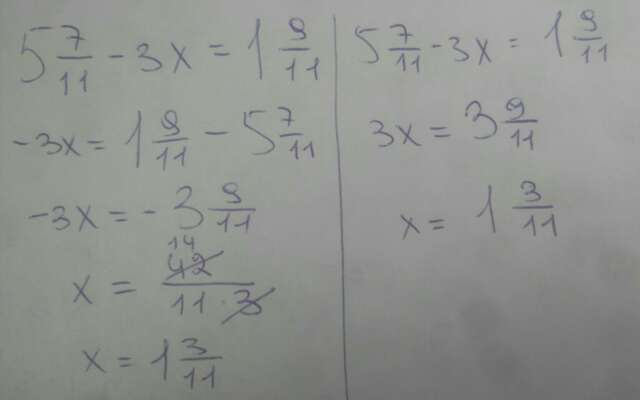 5 7/11 - 3x = 1 9/11
-3x = 1 9/11 - 5 7/11
-3x = - 3 9/11
x = 42/(11·3) 14
x = 1 3/11
5 7/11 - 3x = 1 9/11
3x = 3 9/11
x = 1 3/11